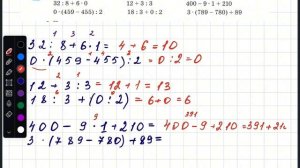 32 : 8 + 6 · 0 12 + 3 : 3 400 − 9 · 1 + 210
0 · (459 − 455) : 2 18 : 3 + 0 : 2 3 · (789 − 780) + 89
1 3 2
32 : 8 + 6 · 1 = 4 + 6 = 10
0 · (459 − 455) : 2 = 0 : 2 = 0
2 1
12 + 3 : 3 = 12 + 1 = 13
18 : 3 + (0 : 2) = 6 + 0 = 6
9 391
400 − 9 · 1 + 210 = 400 − 9 + 210 = 391 + 21
3 · (789 − 780) + 89 =